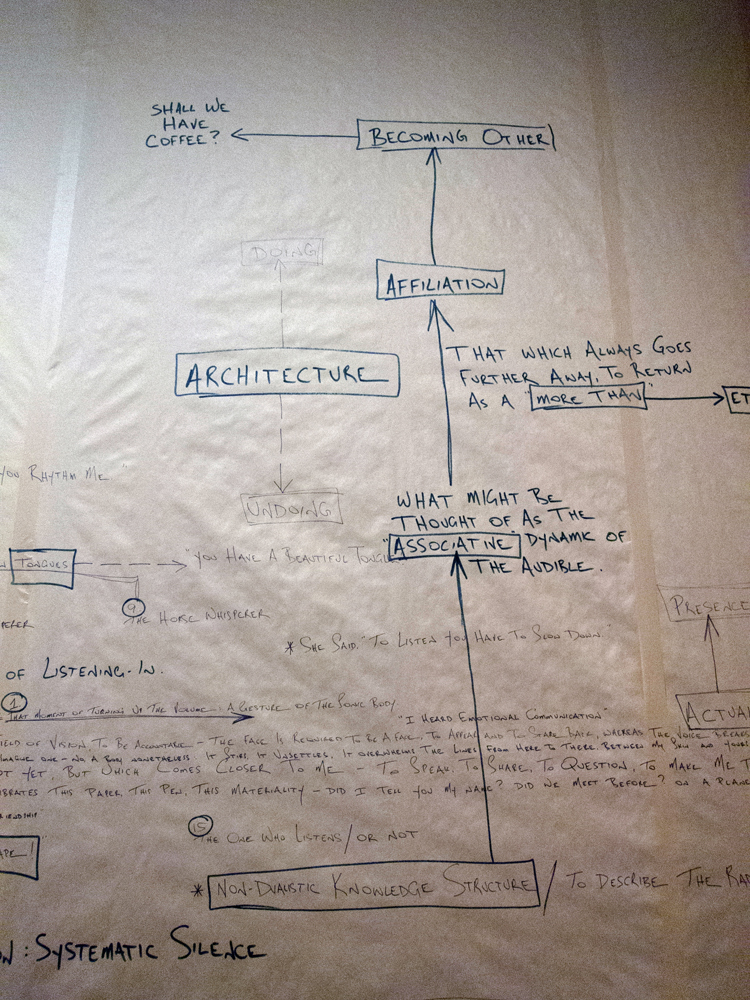 SHALL WE
HAVE
COFFEE?
BECOMING OTHER
DOING
AFFILIATION
ARCHITECTURE
THAT WHICH ALWAYS GOES
FURTHER AWAY, TO RETURN
AS A "MORE THAN"
ET
YOU RHYTHM ME "
UNDOING
WHAT MIGHT BE
THOUGHT OF AS THE
"ASSOCIATIVE" DYNAMIC OF
THE AUDIBLE.
TONGUES
"YOU HAVE A BEAUTIFUL TONGUE
9
THE HORSE WHISPERER
PRESENCE
* SHE SAID, "TO LISTEN YOU HAVE TO SLOW DOWN."
OF LISTENING-IN.
1
THAT MOMENT OF TURNING UP THE VOLUME: A GESTURE OF THE SONIC BODY
"I HEARD EMOTIONAL COMMUNICATION"
ACTUAL
FIELD OF VISION, TO BE ACCOUNTABLE – THE FACE IS REQUIRED TO BE A FACE, TO AFFIRM AND TO STARE BACK, WHEREAS THE VOICE
ONE – NO A BODY NONETHELESS. IT STIRS, IT UNSETTLES, IT OVERWHELMS THE LINES FROM HERE TO THERE, BETWEEN MY SKIN AND YOURS
YET, BUT WHICH COMES CLOSER TO ME – TO SPEAK, TO SHARE, TO QUESTION, TO MAKE ME
THIS PAPER, THIS PEN, THIS MATERIALITY – DID I TELL YOU MY NAME? DID WE MEET BEFORE? ON A PLANE
15
THE ONE WHO LISTENS / OR NOT
* NON-DUALISTIC KNOWLEDGE STRUCTURE / TO DESCRIBE THE
: SYSTEMATIC SILENCE